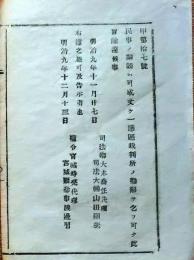 甲第拾七號
民事ノ訴訟ハ可成丈ケ一應區裁判所ノ勸解ヲ乞フ可ク此
旨諭達候事
明治九年十一月廿七日
司法卿大木喬任代理
司法大輔山田顯義
右達之趣可及告示者也
明治九年十二月十三日
縣令宮城時亮代理
宮城縣參事